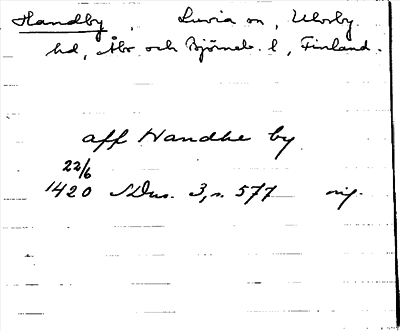 Handby, Luvia sn, Ulvsby
hd, Åbo och Björneb. l, Finland.
aff Handhe by
22/6
1420 SDns. 3, s. 577 orig.